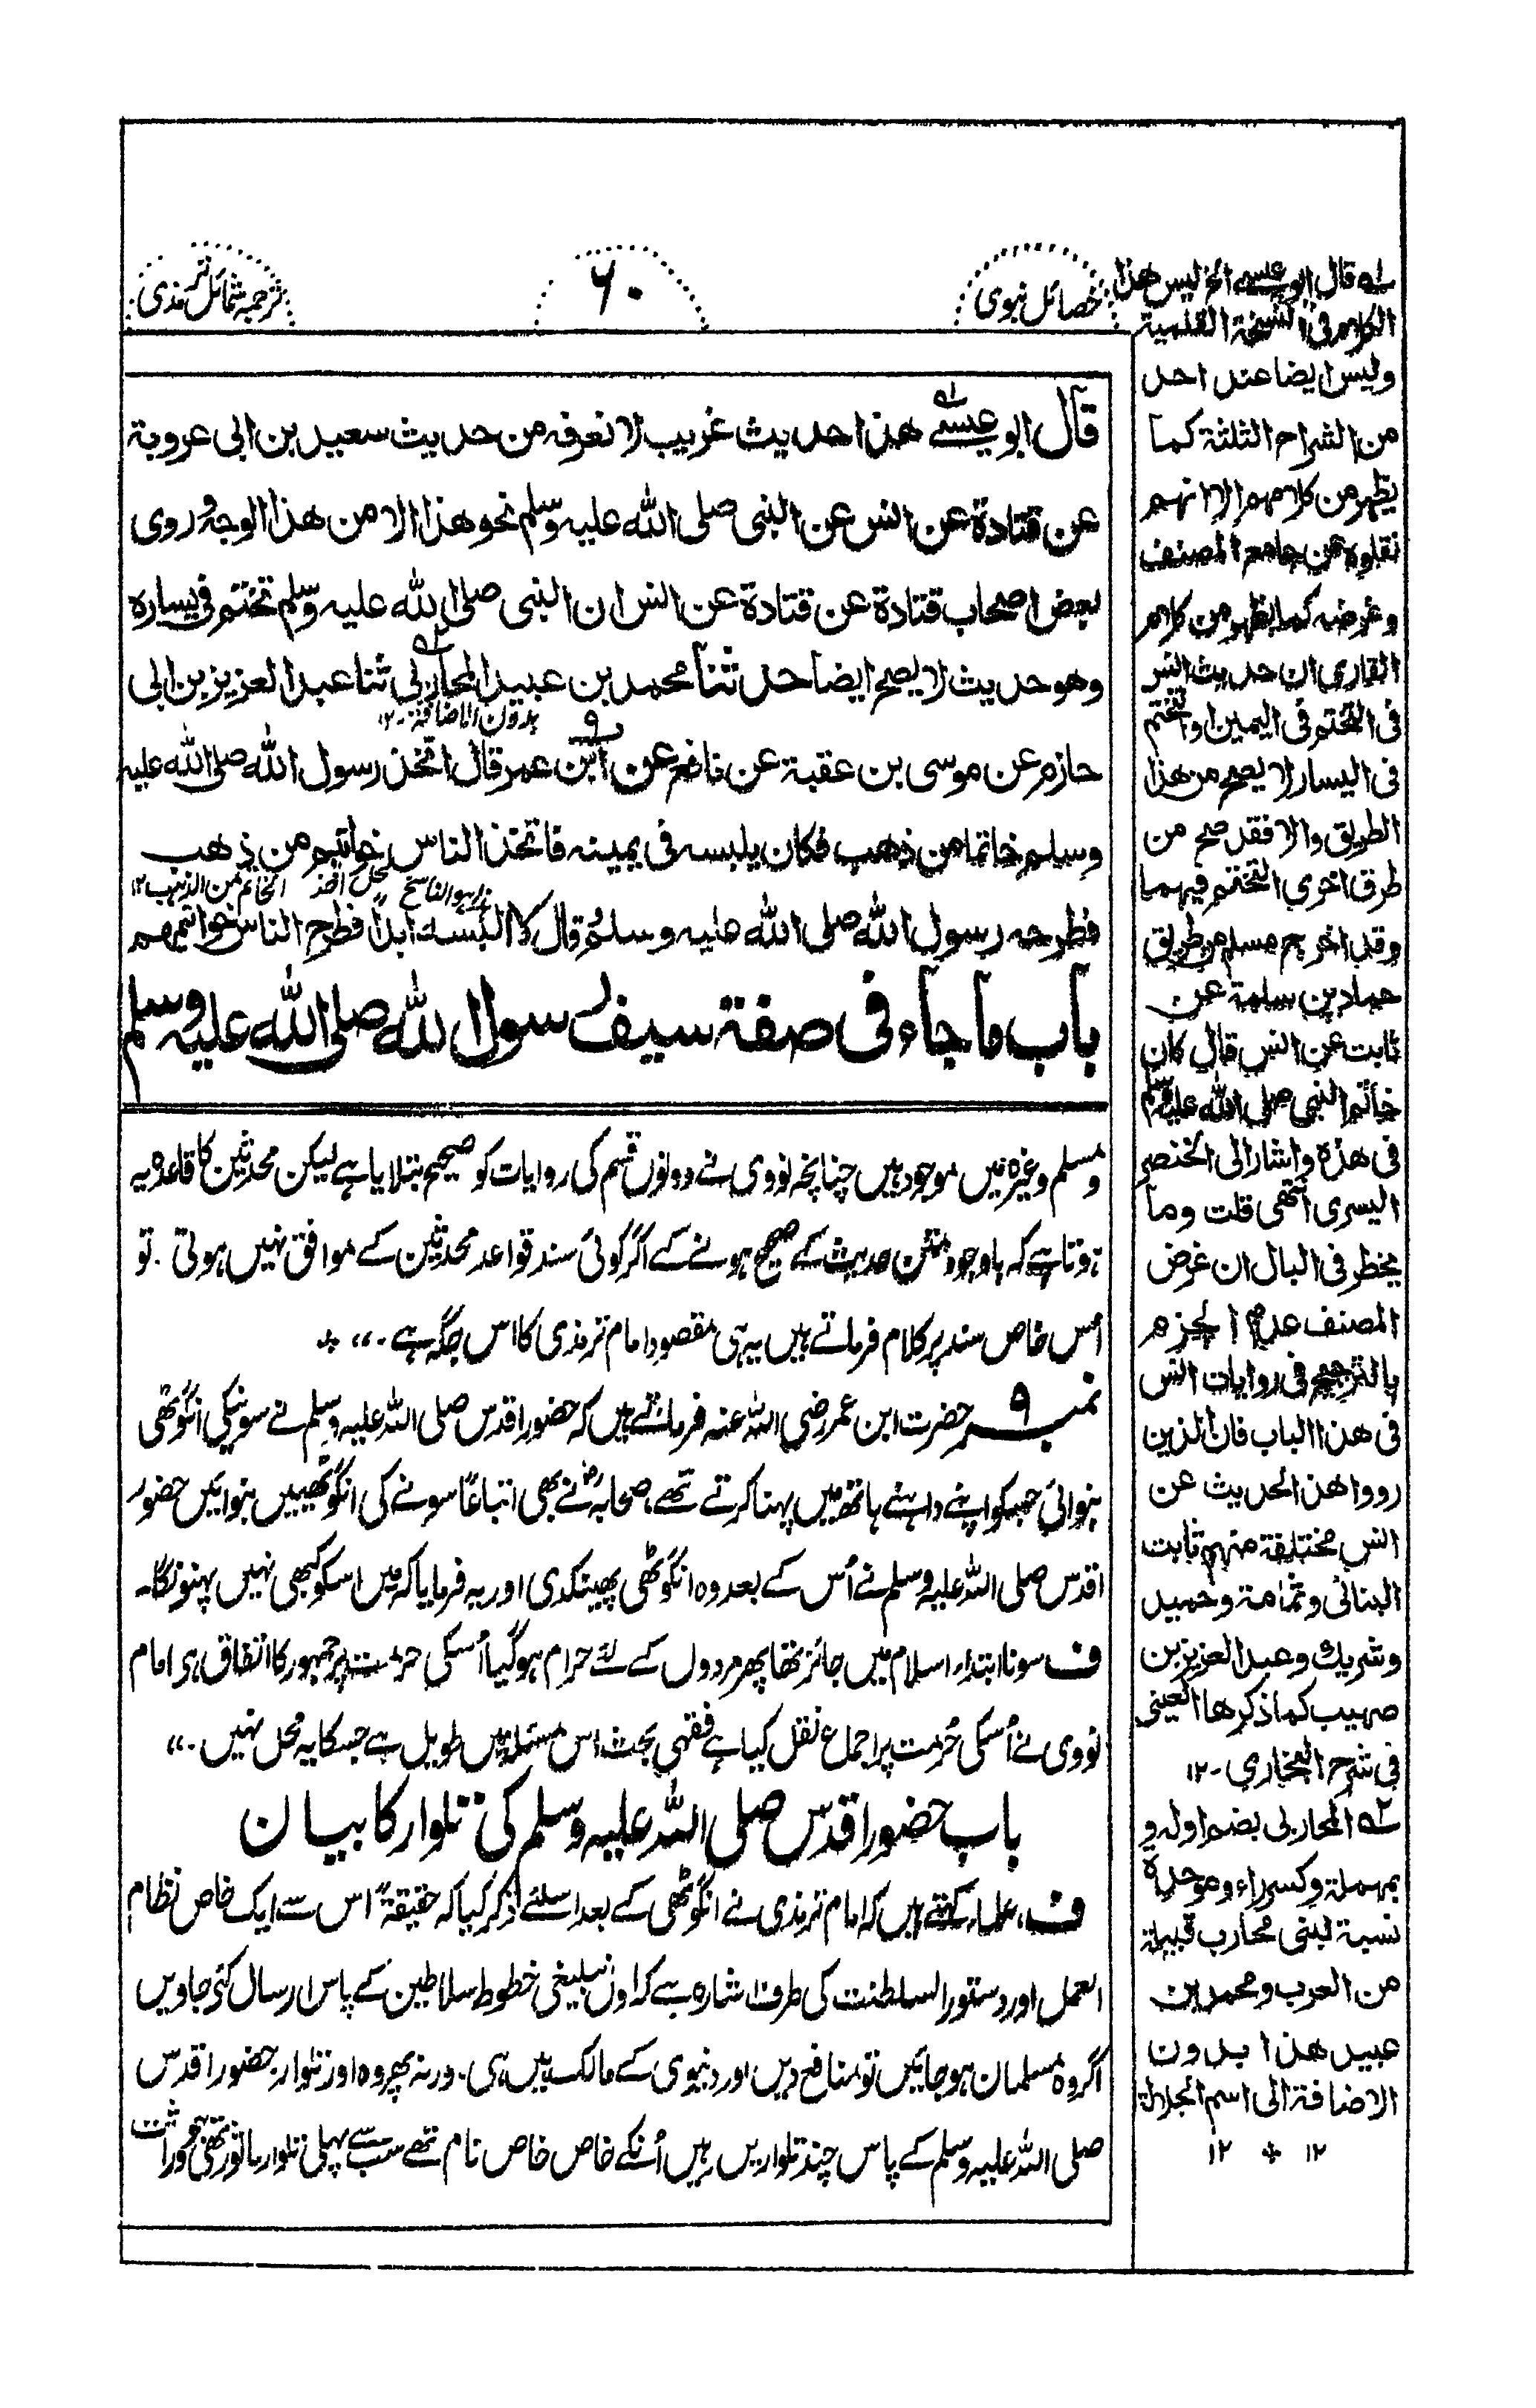 خصائل نبوی
۶۰
ترجمہ شمائل ترمذی
قال ابو عیسےٰ هذا حدیث غریب لا نعرفه من حدیث سعید بن ابی عروبة
عن قتادة عن انس عن النبی صلی الله علیه وسلم نحو هذا الا من هذا الوجه وروی
بعض اصحاب قتادة عن قتادة عن انس ان النبی صلی الله علیه وسلم تختم فی یساره
وهو حدیث لا یصح ایضا حدثنا محمد بن عبید المحاربی ثنا عبد العزیز بن ابی
بدون الاضافة ۱۲
حازم عن موسی بن عقبة عن نافع عن ابن عمر قال اتخذ رسول الله صلی الله علیه
وسلم خاتما من ذهب فکان یلبسه فی یمینه فاتخذ الناس خواتیم من ذهب
فطرحه رسول الله صلی الله علیه وسلم قال لا البسه ابدًا فطرح الناس خواتیمهم
باب ما جاء فی صفة سیف رسول الله صلی الله علیه وسلم
و مسلم وغیرہ میں موجود ہیں چنانچہ نووی نے دونوں قسم کی روایات کو صحیح بتلایا ہے لیکن محدثین کا قاعدہ یہ
ہوتا ہے کہ باوجود متن حدیث کے صحیح ہونے کے اگر کوئی سند قواعد محدثین کے موافق نہیں ہوتی ۔ تو
اُس خاص سند پر کلام فرماتے ہیں یہ ہی مقصود امام ترمذی کا اس جگہ ہے ۔،، ٭
نمبر ۹ حضرت ابن عمر رضی اللہ عنہ فرماتے ہیں کہ حضور اقدس صلی اللہ علیہ وسلم نے سونیکی انگوٹھی
بنوائی جسکو اپنے داہنے ہاتھ میں پہنا کرتے تھے، صحابہؓ نے بھی اتباعًا سونے کی انگوٹھییں بنوائیں حضور
اقدس صلی اللہ علیہ وسلم نے اُس کے بعد وہ انگوٹھی پھینکدی اور یہ فرمایا کہ میں اسکو کبھی نہیں پہنونگا۔
ف سونا ابتداء اسلام میں جائز تھا پھر مردوں کے لئے حرام ہوگیا اُسکی حرمت پر جمہور کا اتفاق ہی امام
نووی نے اُسکی حُرمت پر اجماع نقل کیا ہے فقہی بحث اس مسئلہ میں طویل ہے جسکا یہ محل نہیں ۔،،
باب حضور اقدس صلی اللہ علیہ وسلم کی تلوار کا بیان
ف، علماء کہتے ہیں کہ امام ترمذی نے انگوٹھی کے بعد اسلئے ذکر کیا کہ حقیقۃً اس سے ایک خاص نظام
العمل اور دستور السلطنت کی طرف اشارہ ہے کہ اول تبلیغی خطوط سلاطین کے پاس ارسال کئے جاویں
اگر وہ مسلمان ہوجائیں تو منافع دیں اور دنیوی کے مالک ہیں ہی ۔ ورنہ پھر وہ اور تلوار ۔ حضور اقدس
صلی اللہ علیہ وسلم کے پاس چند تلواریں رہیں اُنکے خاص خاص نام تھے سب سے پہلی تلوار ماثور تھی جو وراثت
لہ قال ابو عیسے الخ لیس هذا
الکلام فی النسخة القلمیة
ولیس ایضا عند احد
من الشراح الثلثة کما
یظهر من کلامهم الا انهم
نقلوه عن جامع المصنف
وغرضه کما یظهر من کلام
القاری ان حدیث انس
فی التختم فی الیمین او التختم
فی الیسار لا یصح من هذا
الطریق والا فقد صح من
طرق اخری التختم فیهما
وقد اخرج مسلم من طریق
حماد بن سلمة عن
ثابت عن انس قال کان
خاتم النبی صلی الله علیه وسلم
فی هذه واشار الی الخنصر
الیسری انتهی قلت وما
یخطر فی البال ان غرض
المصنف عدم الجزم
بالترجیح فی روایات انس
فی هذا الباب فان الذین
رووا هذا الحدیث عن
انس مختلفة منهم ثابت
البنانی وثمامة وحمید
وشریك وعبد العزیز بن
صهیب کما ذکرها العینی
فی شرح البخاری ۔۱۲
۲ہ المحاربی بضم اوله و
بمهملة وکسر راء وموحدة
نسبة لبنی محارب قبیلة
من العرب ومحمد بن
عبید هذا بدون
الاضافة الی اسم الجلالة
۱۲ ٭ ۱۲